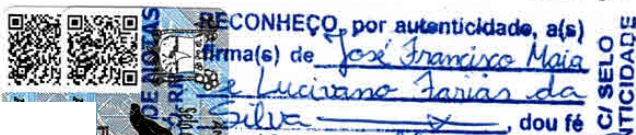 RECONHEÇO, por autenticidade, a(s)
firma(s) de José Francisco Maia
e Lucivano Farias da
Silva , dou fé
C/ SELO
DE NOTAS